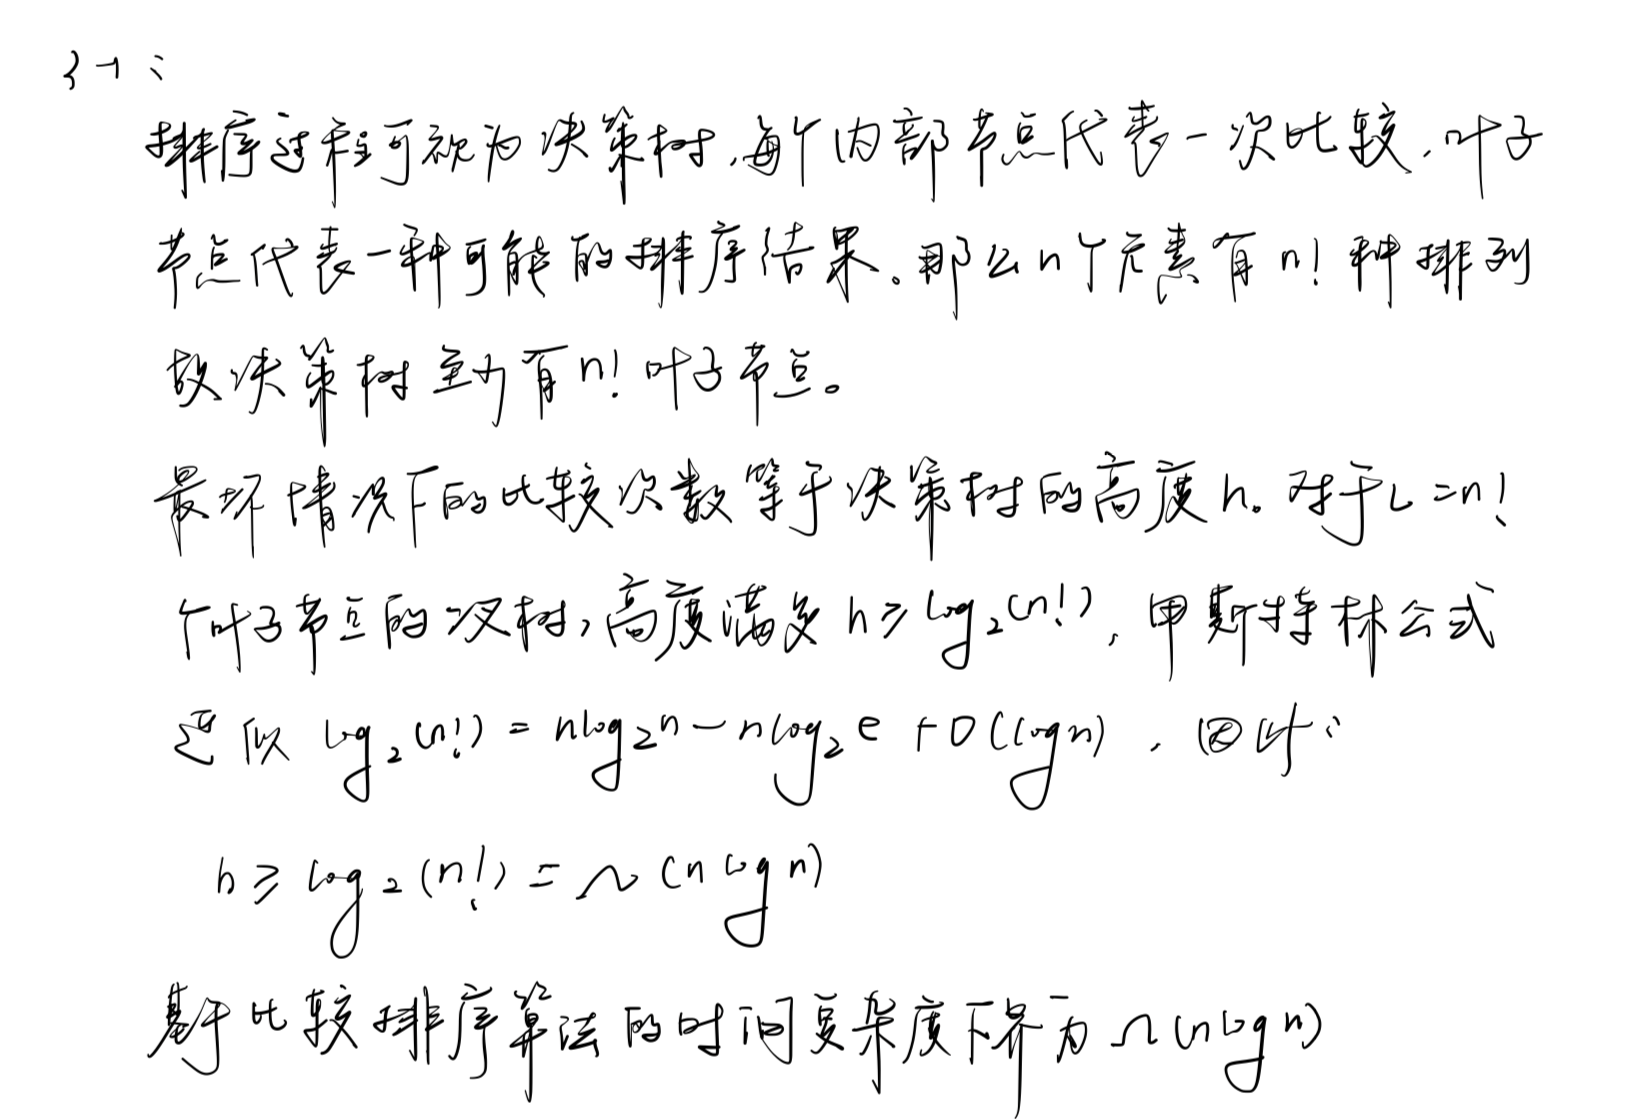 3-1:
排序过程可视为决策树,每个内部节点代表一次比较,叶子
节点代表一种可能的排序结果。那么n个元素有n!种排列
故决策树至少有n!叶子节点。
最坏情况下的比较次数等于决策树的高度h。对于L=n!
个叶子节点的二叉树,高度满足h≥log₂(n!),由斯特林公式
近似 log₂(n!) = nlog₂n - nlog₂e + O(logn),因此:
h≥log₂(n!) = Ω(nlogn)
基于比较排序算法的时间复杂度下界为Ω(nlogn)